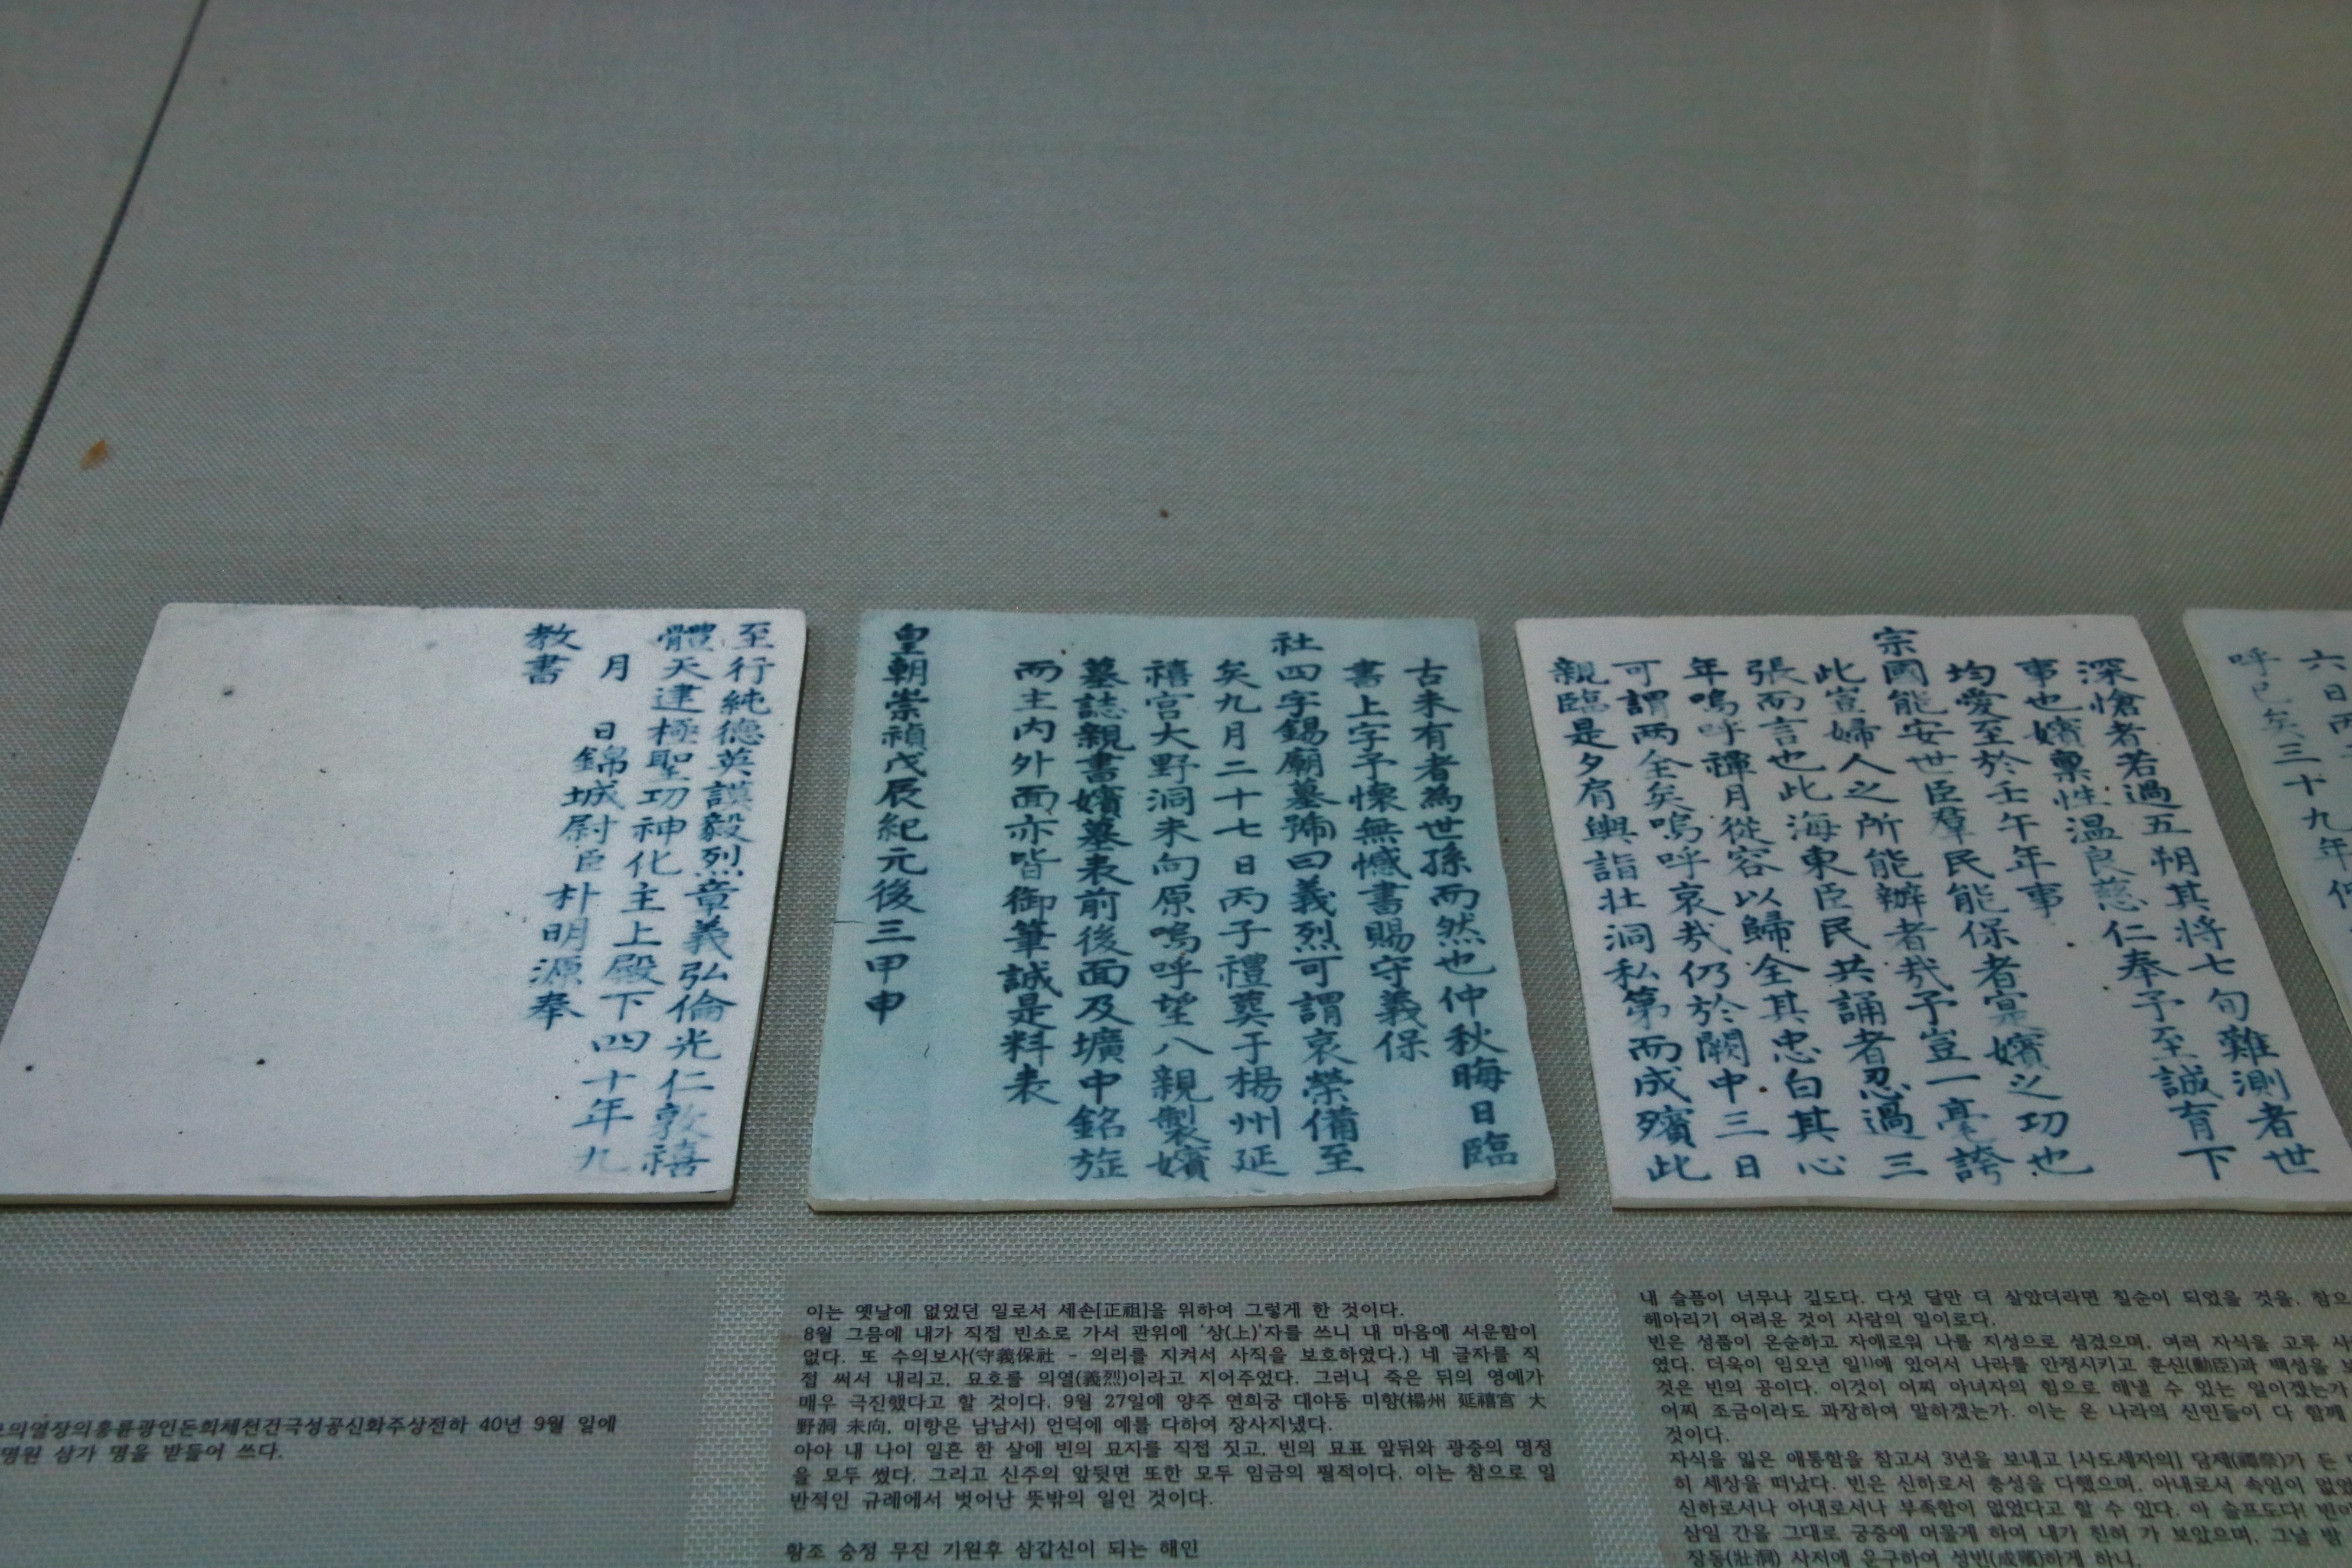 六日丙
呼已矣三十九年
深愴者若過五朔其將七旬難測者世
事也嬪禀性溫良慈仁奉予至誠育下
均愛至於壬午年事
宗國能安世臣羣民能保者寔嬪之功也
此豈婦人之所能辦者哉予豈一毫誇
張而言也此海東臣民共誦者忍過三
年嗚呼禫月從容以歸全其忠白其心
可謂兩全矣嗚呼哀哉仍於闕中三日
親臨是夕肩輿詣壯洞私第而成殯此
古未有者為世孫而然也仲秋晦日臨
書上字予懷無憾書賜守義保
社四字錫廟墓號曰義烈可謂哀榮備至
矣九月二十七日丙子禮葬于楊州延
禧宮大野洞未向原嗚呼望八親製嬪
墓誌親書嬪墓表前後面及壙中銘旌
而主內外面亦皆御筆誠是料表
皇朝崇禎戊辰紀元後三甲申
至行純德英謨毅烈章義弘倫光仁敦禧
體天建極聖功神化主上殿下四十年九
月 日錦城尉臣朴明源奉
教書
의열장의홍륜광인돈희체천건극성공신화주상전하 40년 9월 일에
명원 삼가 명을 받들어 쓰다.
이는 옛날에 없었던 일로서 세손[正祖]을 위하여 그렇게 한 것이다.
8월 그믐에 내가 직접 빈소로 가서 관위에 '상(上)'자를 쓰니 내 마음에 서운함이
없다. 또 수의보사(守義保社 - 의리를 지켜서 사직을 보호하였다.) 네 글자를 직
접 써서 내리고, 묘호를 의열(義烈)이라고 지어주었다. 그러니 죽은 뒤의 영예가
매우 극진했다고 할 것이다. 9월 27일에 양주 연희궁 대야동 미향(楊州 延禧宮 大
野洞 未向, 미향은 남남서) 언덕에 예를 다하여 장사지냈다.
아아 내 나이 일흔 한 살에 빈의 묘지를 직접 짓고, 빈의 묘표 앞뒤와 광중의 명정
을 모두 썼다. 그리고 신주의 앞뒷면 또한 모두 임금의 필적이다. 이는 참으로 일
반적인 규례에서 벗어난 뜻밖의 일인 것이다.
황조 숭정 무진 기원후 삼갑신이 되는 해인
내 슬픔이 너무나 깊도다. 다섯 달만 더 살았더라면 칠순이 되었을 것을, 참으
헤아리기 어려운 것이 사람의 일이로다.
빈은 성품이 온순하고 자애로워 나를 지성으로 섬겼으며, 여러 자식을 고루 사
였다. 더욱이 임오년 일1)에 있어서 나라를 안정시키고 훈신(勳臣)과 백성을
것은 빈의 공이다. 이것이 어찌 아녀자의 힘으로 해낼 수 있는 일이겠는가
어찌 조금이라도 과장하여 말하겠는가. 이는 온 나라의 신민들이 다 함께
것이다.
자식을 잃은 애통함을 참고서 3년을 보내고 [사도세자의] 담제(禫祭)가 든
히 세상을 떠났다. 빈은 신하로서 충성을 다했으며, 아내로서 속임이 없었
신하로서나 아내로서나 부족함이 없었다고 할 수 있다. 아 슬프도다! 빈이
삼일 간을 그대로 궁중에 머물게 하여 내가 친히 가 보았으며, 그날 밤
장동(壯洞) 사저에 운구하여 성빈(成殯)하게 하니